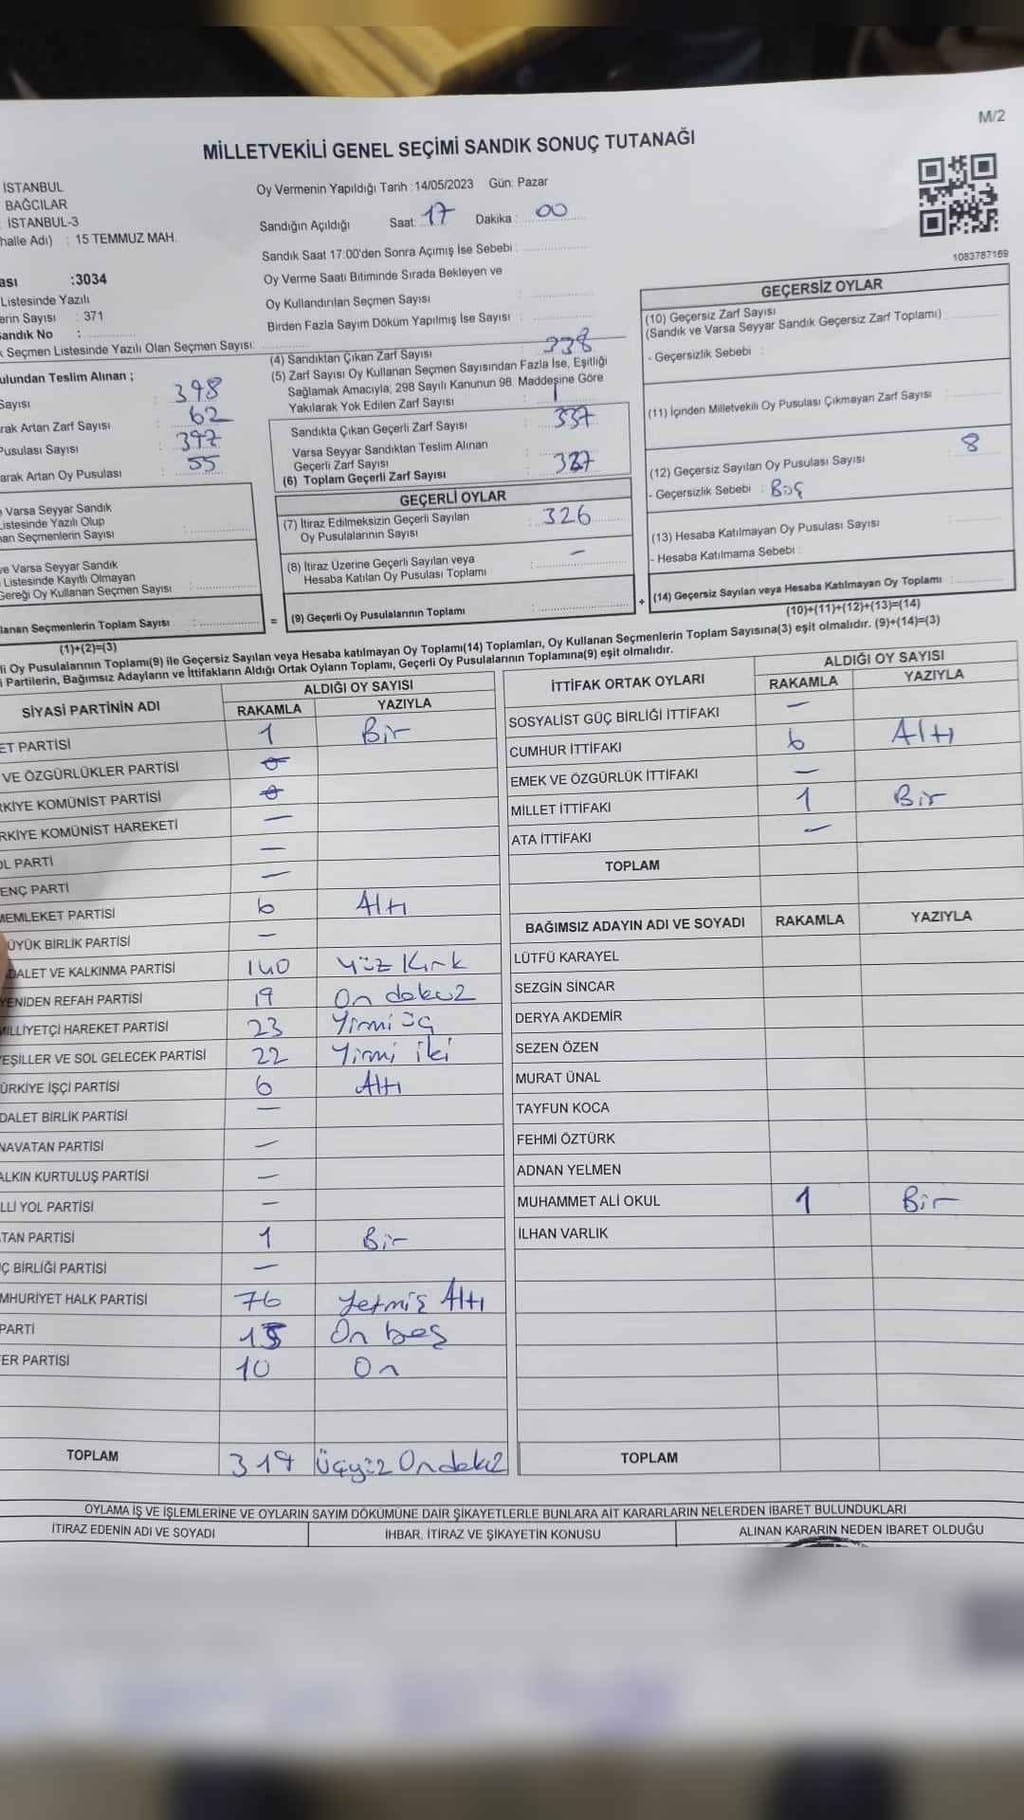 M/2
MİLLETVEKİLİ GENEL SEÇİMİ SANDIK SONUÇ TUTANAĞI
İSTANBUL
BAĞCILAR
: İSTANBUL-3
halle Adı) : 15 TEMMUZ MAH.
ası :3034
Listesinde Yazılı
erin Sayısı : 371
andık No :
k Seçmen Listesinde Yazılı Olan Seçmen Sayısı:
ulundan Teslim Alınan ;
Sayısı : 398
rak Artan Zarf Sayısı : 62
Pusulası Sayısı : 397
arak Artan Oy Pusulası : 55
e Varsa Seyyar Sandık
Listesinde Yazılı Olup
nan Seçmenlerin Sayısı
ve Varsa Seyyar Sandık
Listesinde Kayıtlı Olmayan
Gereği Oy Kullanan Seçmen Sayısı
lanan Seçmenlerin Toplam Sayısı : =
(1)+(2)=(3)
Oy Vermenin Yapıldığı Tarih :14/05/2023 Gün: Pazar
Sandığın Açıldığı Saat: 17 Dakika : 00
Sandık Saat 17:00'den Sonra Açımış İse Sebebi :
Oy Verme Saati Bitiminde Sırada Bekleyen ve
Oy Kullandırılan Seçmen Sayısı :
Birden Fazla Sayım Döküm Yapılmış İse Sayısı :
(4) Sandıktan Çıkan Zarf Sayısı : 338
(5) Zarf Sayısı Oy Kullanan Seçmen Sayısından Fazla İse, Eşitliği
Sağlamak Amacıyla, 298 Sayılı Kanunun 98. Maddesine Göre
Yakılarak Yok Edilen Zarf Sayısı : 1
Sandıkta Çıkan Geçerli Zarf Sayısı : 337
Varsa Seyyar Sandıktan Teslim Alınan
Geçerli Zarf Sayısı :
(6) Toplam Geçerli Zarf Sayısı : 337
GEÇERLİ OYLAR
(7) İtiraz Edilmeksizin Geçerli Sayılan
Oy Pusulalarının Sayısı : 326
(8) İtiraz Üzerine Geçerli Sayılan veya
Hesaba Katılan Oy Pusulası Toplamı : -
(9) Geçerli Oy Pusulalarının Toplamı : +
1083787169
GEÇERSİZ OYLAR
(10) Geçersiz Zarf Sayısı
(Sandık ve Varsa Seyyar Sandık Geçersiz Zarf Toplamı) :
- Geçersizlik Sebebi :
(11) İçinden Milletvekili Oy Pusulası Çıkmayan Zarf Sayısı :
(12) Geçersiz Sayılan Oy Pusulası Sayısı : 8
- Geçersizlik Sebebi : Boş
(13) Hesaba Katılmayan Oy Pusulası Sayısı :
- Hesaba Katılmama Sebebi :
(14) Geçersiz Sayılan veya Hesaba Katılmayan Oy Toplamı :
(10)+(11)+(12)+(13)=(14)
li Oy Pusulalarının Toplamı(9) ile Geçersiz Sayılan veya Hesaba katılmayan Oy Toplamı(14) Toplamları, Oy Kullanan Seçmenlerin Toplam Sayısına(3) eşit olmalıdır. (9)+(14)=(3)
i Partilerin, Bağımsız Adayların ve İttifakların Aldığı Ortak Oyların Toplamı, Geçerli Oy Pusulalarının Toplamına(9) eşit olmalıdır.
SİYASİ PARTİNİN ADI ALDIĞI OY SAYISI
RAKAMLA YAZIYLA
ET PARTİSİ 1 Bir
VE ÖZGÜRLÜKLER PARTİSİ
RKİYE KOMÜNİST PARTİSİ
RKİYE KOMÜNİST HAREKETİ -
OL PARTİ -
ENÇ PARTİ -
MEMLEKET PARTİSİ 6 Altı
ÜYÜK BİRLİK PARTİSİ -
DALET VE KALKINMA PARTİSİ 140 Yüz Kırk
YENİDEN REFAH PARTİSİ 19 On dokuz
MİLLİYETÇİ HAREKET PARTİSİ 23 Yirmi üç
YEŞİLLER VE SOL GELECEK PARTİSİ 22 Yirmi iki
ÜRKİYE İŞÇİ PARTİSİ 6 Altı
DALET BİRLİK PARTİSİ -
NAVATAN PARTİSİ -
ALKIN KURTULUŞ PARTİSİ -
LLİ YOL PARTİSİ -
TAN PARTİSİ 1 Bir
Ç BİRLİĞİ PARTİSİ -
MHURİYET HALK PARTİSİ 76 Yetmiş Altı
PARTİ 15 On beş
ER PARTİSİ 10 On
TOPLAM 319 Üçyüz Ondokuz
İTTİFAK ORTAK OYLARI ALDIĞI OY SAYISI
RAKAMLA YAZIYLA
SOSYALİST GÜÇ BİRLİĞİ İTTİFAKI -
CUMHUR İTTİFAKI 6 Altı
EMEK VE ÖZGÜRLÜK İTTİFAKI -
MİLLET İTTİFAKI 1 Bir
ATA İTTİFAKI -
TOPLAM
BAĞIMSIZ ADAYIN ADI VE SOYADI RAKAMLA YAZIYLA
LÜTFÜ KARAYEL
SEZGİN SİNCAR
DERYA AKDEMİR
SEZEN ÖZEN
MURAT ÜNAL
TAYFUN KOCA
FEHMİ ÖZTÜRK
ADNAN YELMEN
MUHAMMET ALİ OKUL 1 Bir
İLHAN VARLIK
TOPLAM
OYLAMA İŞ VE İŞLEMLERİNE VE OYLARIN SAYIM DÖKÜMÜNE DAİR ŞİKAYETLERLE BUNLARA AİT KARARLARIN NELERDEN İBARET BULUNDUKLARI
İTİRAZ EDENİN ADI VE SOYADI İHBAR, İTİRAZ VE ŞİKAYETİN KONUSU ALINAN KARARIN NEDEN İBARET OLDUĞU